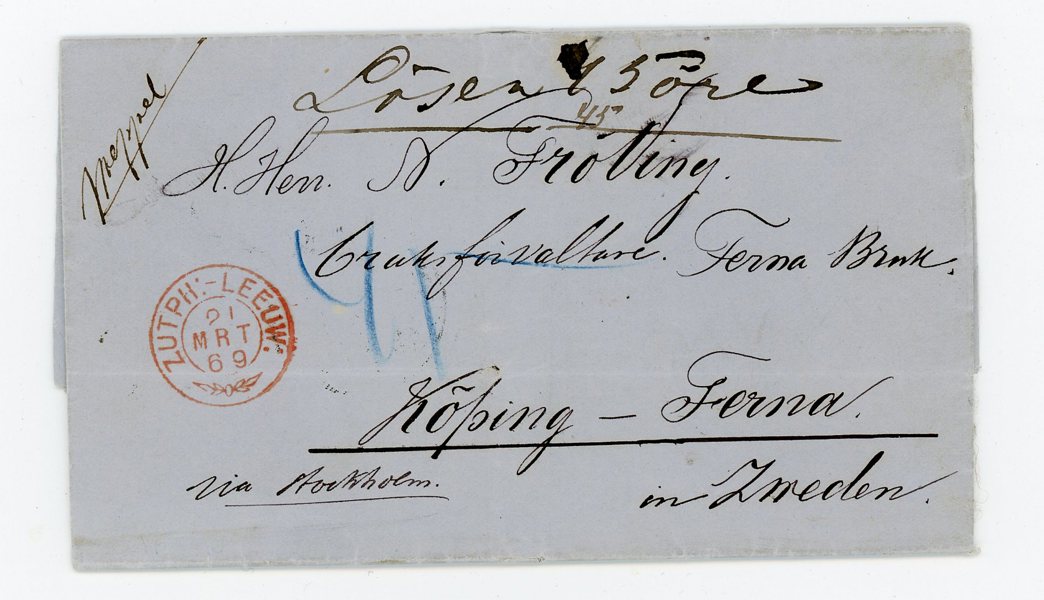 Meppel
Lösen 45 öre
45
H. Herr. N. Frölling.
bruksförvaltare. Ferna Bruk.
ZUTPH:-LEEUW:
21
MRT
69
Köping – Ferna.
via Stockholm.
in Zweden.